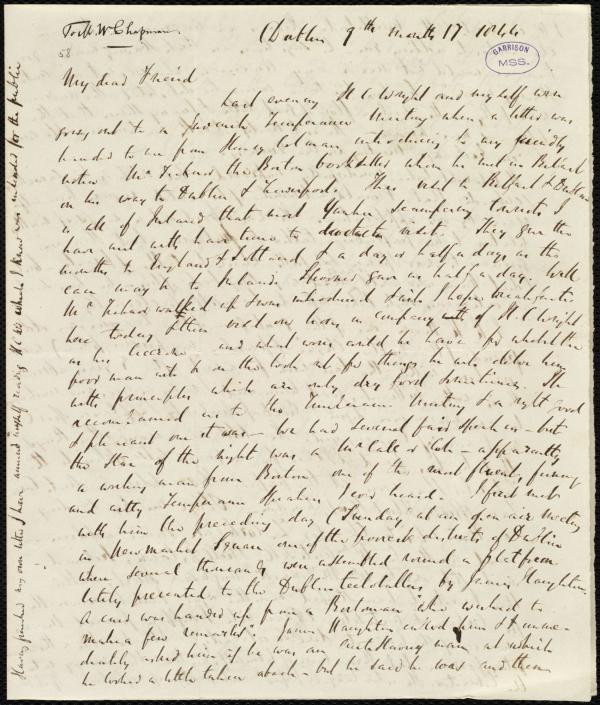 To M. W. Chapman.
Dublin 9th month 17 1844
58
GARRISON
MSS.
My dear Friend
Last evening H C Wright and myself were
going out to a Juvenile Temperance Meeting when a letter was
handed to me from Henry introducing to my friendly
notice Mr the Boston bookseller whom he met in Belfast
on his way to Dublin & Liverpool. This visit to Belfast & Dublin
is all of Ireland that most Yankee scampering tourists I
have met with have time to visit. They give three
months to England & Scotland & a day or half a day as the
case may be to Ireland. Spooner gave us half a day. Well
Mr walked up & was introduced & said I hope breakfasts
here today & then visit our lions in company with H C Wright
as his and what worse could he have for whilst the
poor man is on the look out for things he will him
with principles which are only dry food sometimes. He
accompanied us to the Temperance Meeting & a right good
& pleasant one it was. We had several fair speakers - but
the Star of the night was a Mr - apparently
a working man from Boston one of the most fluent, funny
and witty Temperance Speakers I ever heard. I first met
with him the preceding day (Sunday) at an open air meeting
in Newmarket Square one of the poorest districts of Dublin
where several thousands were assembled round a platform
lately presented to the Dublin teetotallers by James Haughton.
A card was handed up from a Bostonian "who wished to
make a few remarks". James Haughton invited him & imme-
diately asked him if he was an Anti Slavery man, at which
he looked a little taken aback - but he said he was and then
Having finished my own letter I have amused myself reading H C W's which I know was intended for the public